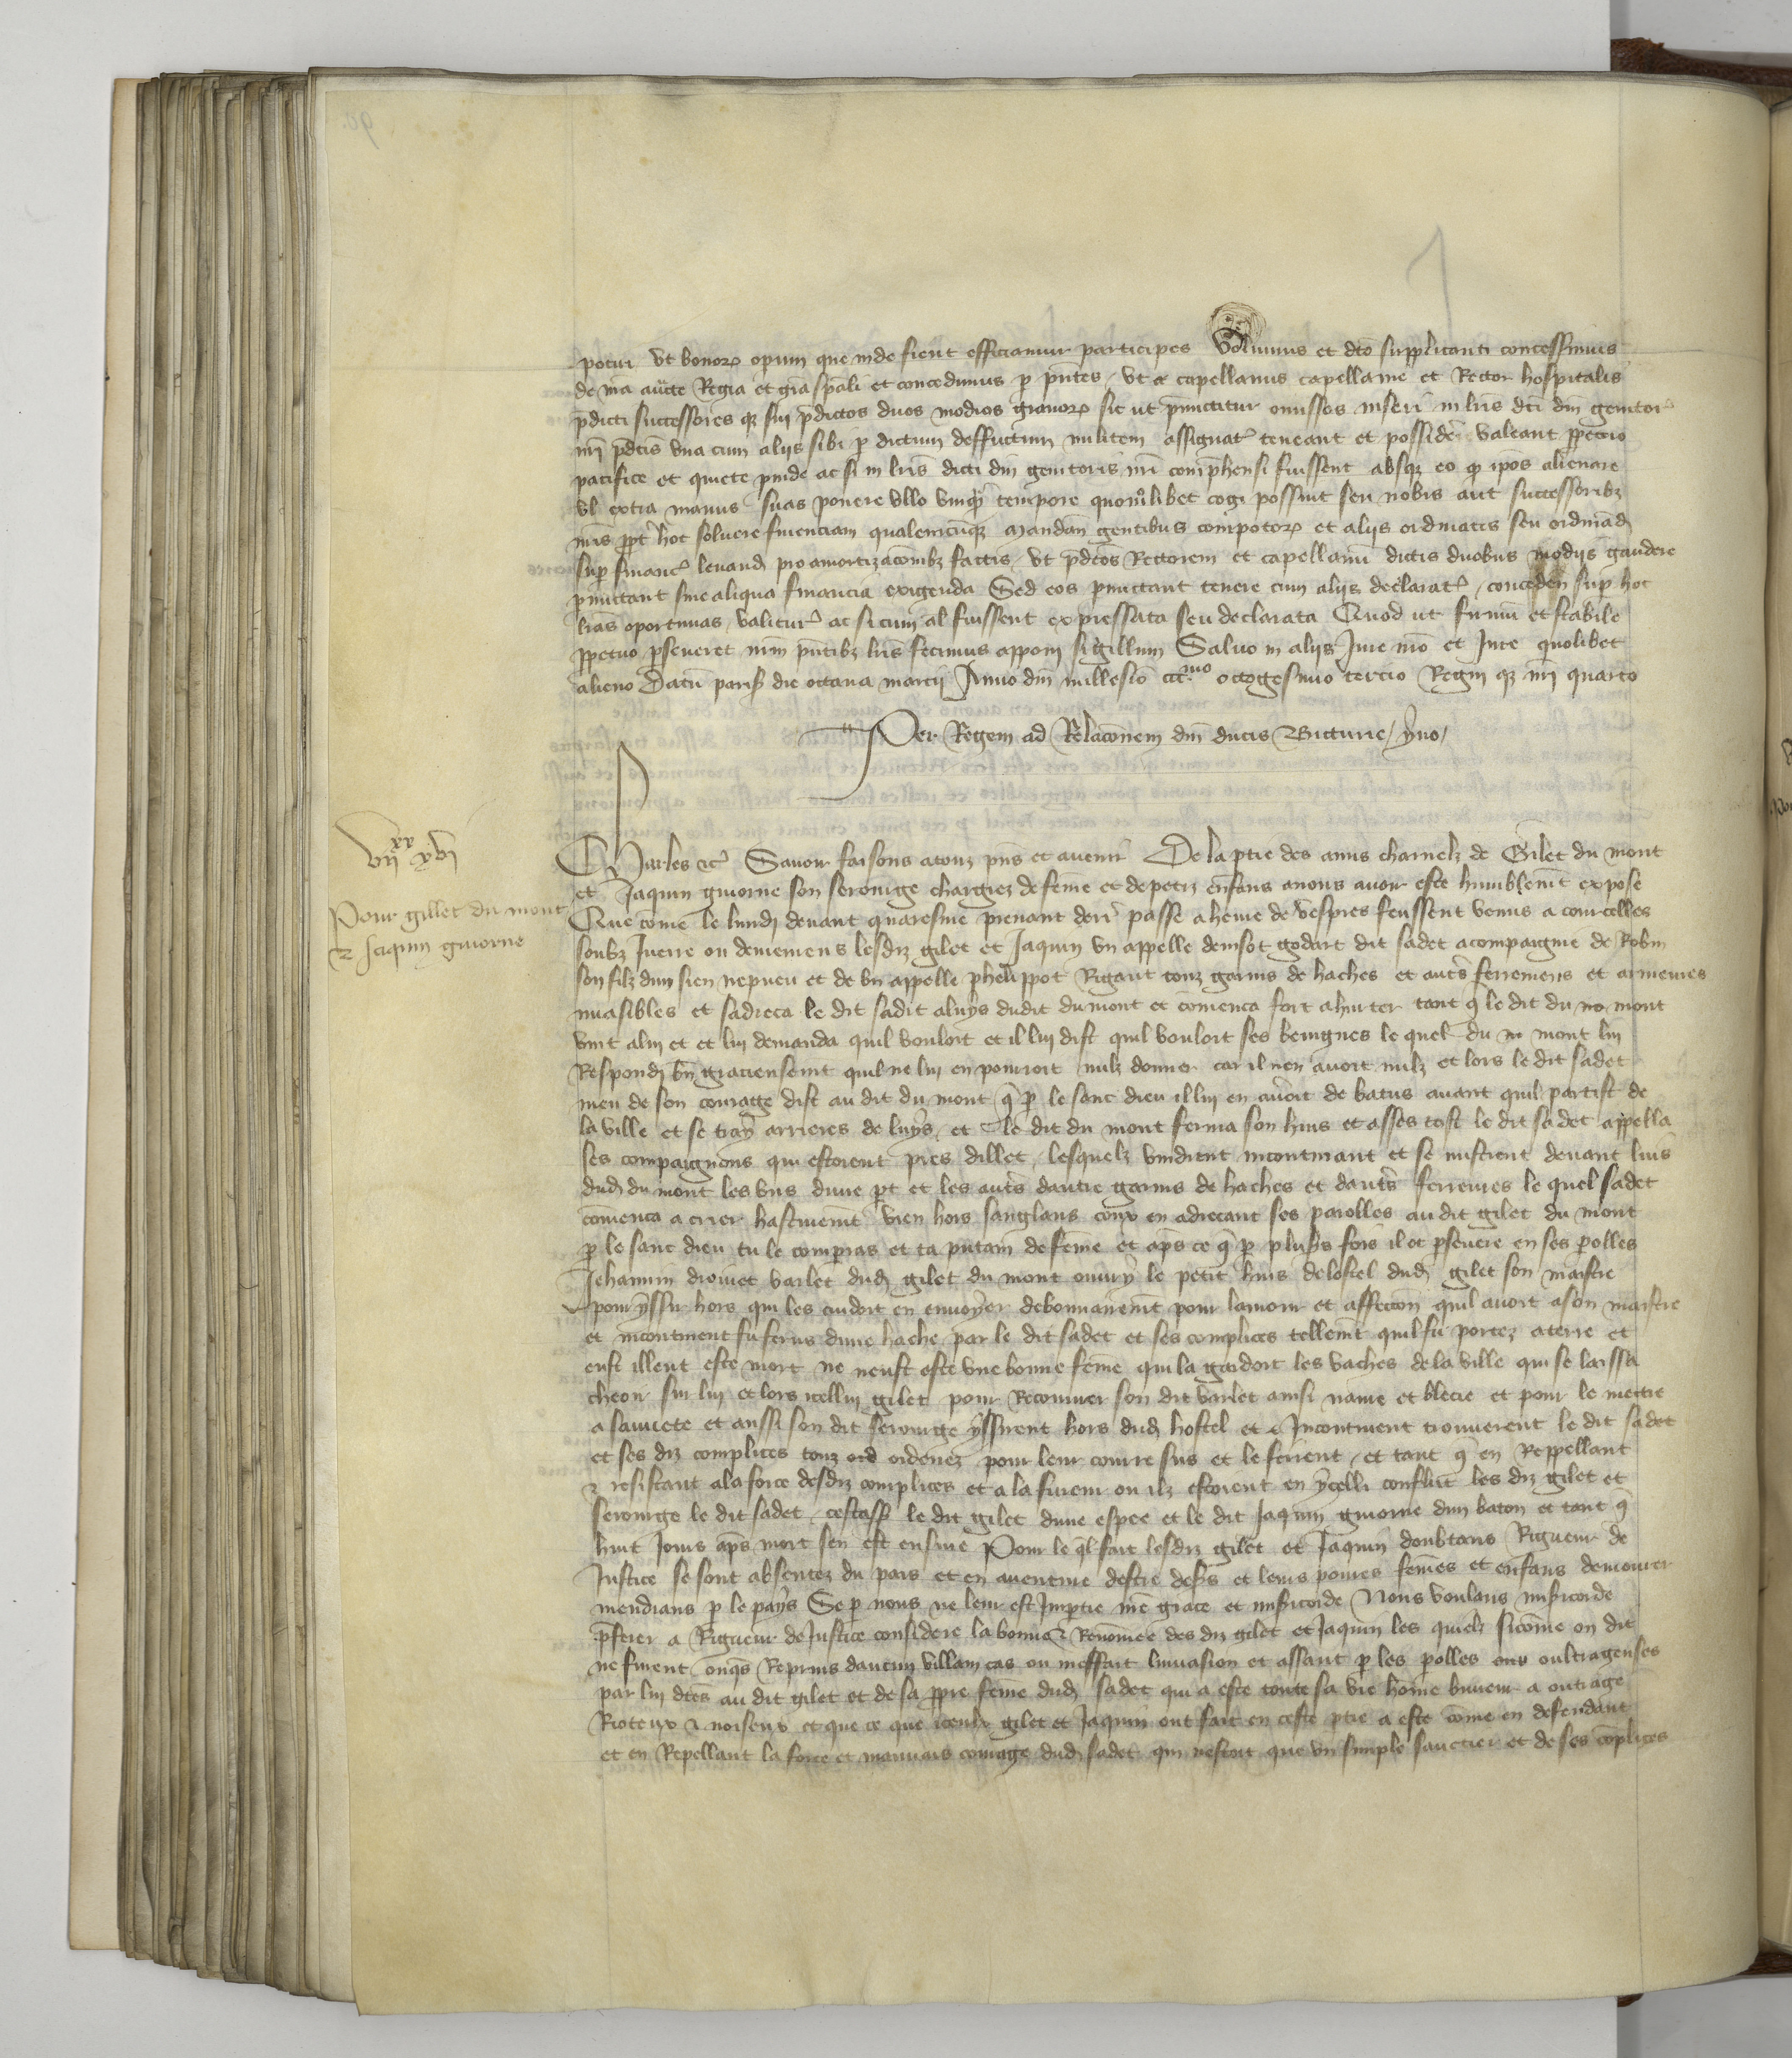 potiri ut bonor operum que inde fient efficiamur participes Volumus et dco supplicanti concessimus
de nra aucte Regia et gra spali et concedimus p pntes / ut capellanus capellanie et Rector hospitalis
pdicti successores qz sui pdictos duos modios granor sic ut pmittitur omissos inseri in lris dci dni genitor
nri pdcis una cum aliis sibi p dictum deffunctum militem assignat teneant et possidere valeant ppetuo
pacifice et quiete pinde ac si in lris dicti dni genitoris nri comphensi fuissent absqz eo q ipos alienare
vl extra manus suas ponere ullo unqz tempore quomolibet cogi possint seu nobis aut successoribz
nris ppt hoc solvere financiam qualemcuqz Mandan gentibus compotor et aliis ordinatis seu ordinad
sup financ levand pro amortizacionibz factis / ut pdcos Rectorem et capellanu dictis duobus modiis gaudere
pmittant sine aliqua financia exigenda Sed eos pmittant tenere cum aliis declarat / conceden sup hoc
lras oportunas / valitur ac si cum al fuissent expressata seu declarata Quod ut firmu et stabile
ppetuo pseveret nrm pntibz lris fecimus apponi sigillum Salvo in aliis Jure nro et Jure quolibet
alieno Datu paris die octava marcii Anno dni millesio ccc mo octogesimo tercio Regni qz nri quarto
Per Regem ad Relacionem dni ducis Bicturie / yvo /
vii xx xvi
Pour gillet du mont
& Jaquin guiorne
Charles etc Savoir faisons a touz pns et avenir De la ptie des amis charnelz de Gilet du mont
et Jaquin guiorne son serourge chargiez de feme et de petiz enfans a nous avoir este humblemt expose
Que come le lundi devant quaresme prenant derr passe a heure de vespres feussent venus a courcelles
soubz Juerre ou demeurens lesdiz gilet et Jaquin un appelle denisot godart dit sadet acompaignie de Robin
son filz dun sien nepveu et de un appelle phelippot Rigaut touz garnis de haches et autrs ferremens et armeures
invasibles et sadreca le dit sadit a luys dudit du mont et comenca fort a hurter tant q le dit du mo mont
vint a lui et et lui demanda quil vouloit et il lui dist quil vouloit ses beuignes le quel du m mont lui
Respondi bn gracieusemt quil ne lui en pourroit nulz donner car il nen avoit nulz et lors le dit sadet
meu de son courage dist au dit du mont q p le sanc dieu il lui en auroit de batus avant quil partist de
la ville et se tray arrieres de luys / et le dit du mont ferma son huis et asses tost le dit sadet appella
ses compaignons qui estoient pres dillec / lesquelz vindrent incontinant et se misrent devant luis
dud du mont les uns dune pt et les autrs dautre garnis de haches et dautrs ferreures le quel sadet
comenca a crier hastivemt vien hors sanglans coux en adrecant ses parolles au dit gilet du mont
p le sanc dieu tu le comparas et ta putain de feme et aps ce q p plusrs fois il ot persevere en ses polles
Jehannin drouiet varlet dud gilet du mont ouvry le petit huis de lostel dud gilet son maistre
pour yssir hors qui les cuidoit en envoyer debonnairemt pour lamour et affeccion quil avoit a son maistre
et incontinent fu ferus dune hache par le dit sadet et ses complices tellemt quil fu portez a terre et
eust illeuc este mort ne neust este une bonne feme qui la gardoit les vaches de la ville qui se laissa
cheoir sur lui et lors icellui gilet pour Recouvrer son dit varlet ainsi navre et blecie et pour le mettre
a sauvete et aussi son dit serourge yssirent hors dud hostel et Incontinent trouverent le dit sadet
et ses diz complices touz ord ordenez pour leur courre sus et le ferirent / et tant q en Reppellant
& resistant a la force desdiz complices et a la fureur ou ilz estoient en ycelli conflict les diz gilet et
serourge le dit sadet / cestassr le dit gilet dune espee et le dit Jaquin guiorne dun baton et tant q
huit Jours aps mort sen est ensuie Pour le ql fait lesdiz gilet et Jaquin doubtans Rigueur de
Justice se sont absentez du pais et en aventure destre desrs et leurs povres femes et enfans demourer
mendians p le pays Se p nous ne leur est Impartie nre grace et misricorde Nous voulans misricorde
pferer a Rigueur de Justice considere la bonne Renomee des diz gilet et Jaquin les quielz sicome on dit
ne furent onqs Reprins daucun villain cas ou meffait linvasion et assaut p les polles oultrageuses
par lui dces au dit gilet et de sa ppre feme dud sadet qui a este toute sa vie home buveur a outrage
Rioteux & noiseux et que ce que iceulx gilet et Jaquin ont fait en ceste ptie a este come en defendant
et en Repellant la force et mauvais courage dud sadet qui nestoit que un simple sauctier et de ses coplices